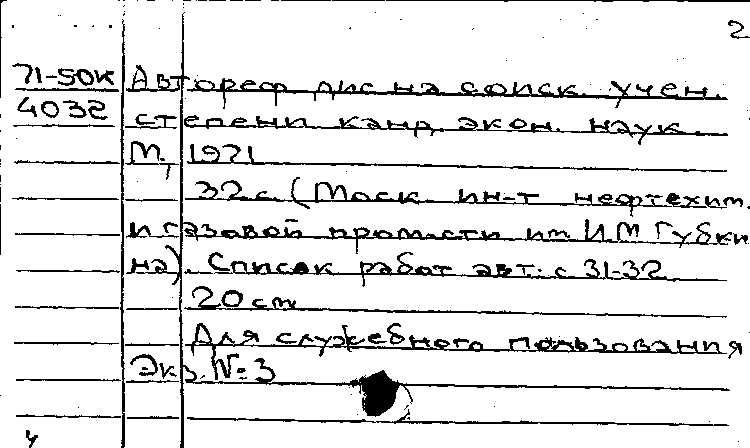 2
71-50К Автореф. дис. на соиск. учен.
4032 степени канд. экон. наук.
М., 1971
32 с. (Моск. ин-т нефтехим.
и газовой пром-сти им. И.М. Губки
на). Список работ авт.: с. 31-32
20 см
Для служебного пользования
Экз. № 3